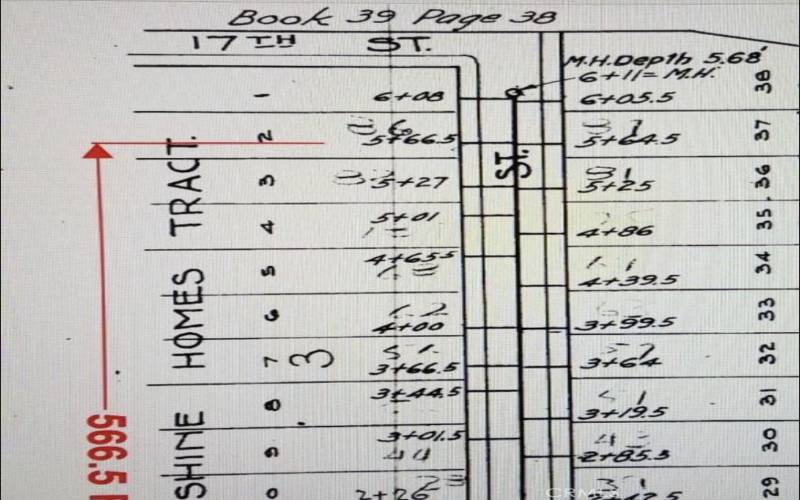 Book 39 Page 38
17TH ST.
M.H. Depth 5.68'
6+11= M.H.
1 6+08 6+05.5 38
2 5+66.5 5+64.5 37
3 5+27 5+25 36
4 5+01 4+86 35
5 4+65.5 4+39.5 34
6 4+00 3+99.5 33
7 3+66.5 3+64 32
8 3+44.5 3+19.5 31
9 3+01.5 2+85.5 30
2+26 29
3
ST.
SHINE HOMES TRACT.
566.5